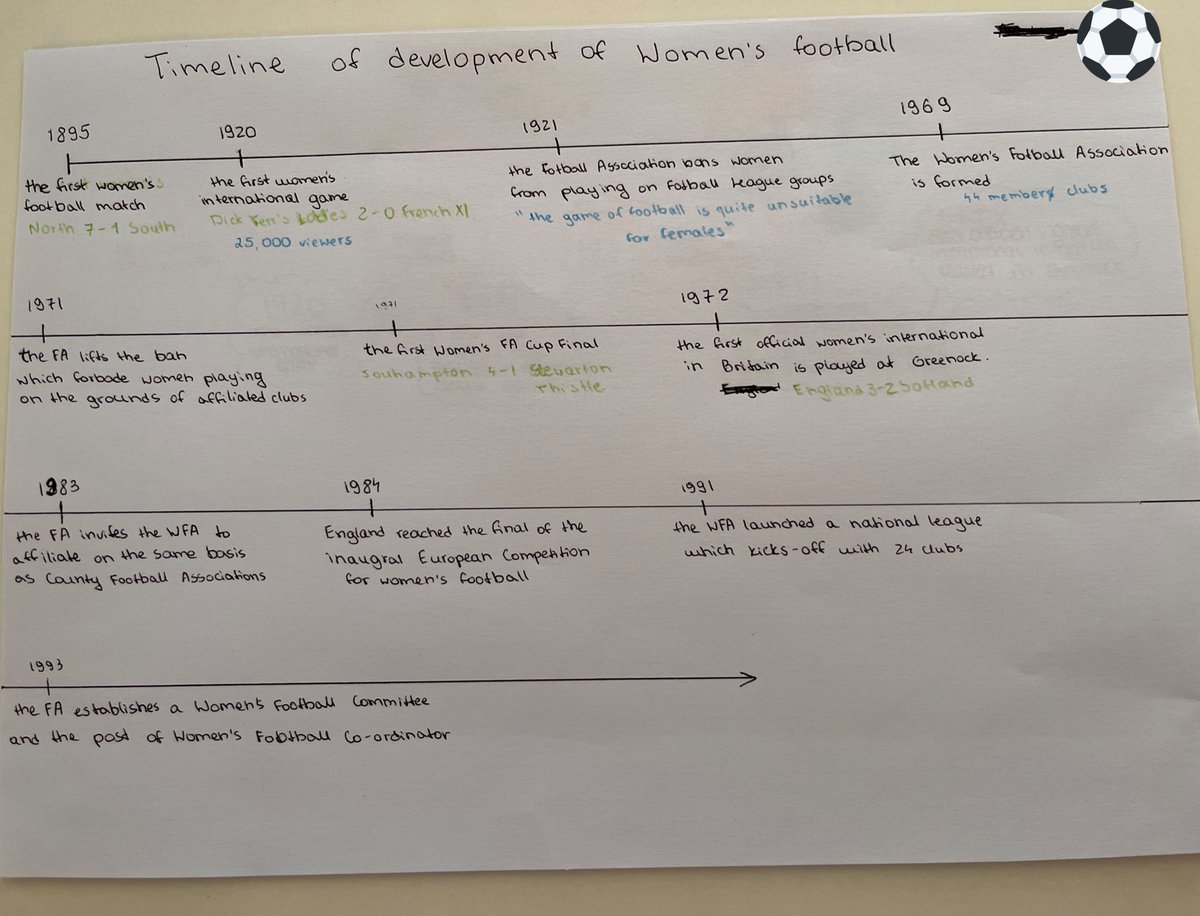 Timeline of development of Women's football
1895
the first women's
football match
North 7-1 South
1920
the first women's
international game
Dick Kerr's Ladies 2-0 French XI
25,000 viewers
1921
the Fotball Association bans women
from playing on Fotball League groups
"the game of football is quite unsuitable
for females"
1969
The Women's Fotball Association
is formed
44 members clubs
1971
the FA lifts the ban
which forbode women playing
on the grounds of affiliated clubs
1971
the first Women's FA Cup Final
Souhampton 4-1 Stewarton
Thistle
1972
the first official women's international
in Britain is played at Greenock.
England 3-2 Sotland
1983
the FA invites the WFA to
affiliate on the same basis
as County Football Associations
1984
England reached the final of the
inaugral European Competition
for women's football
1991
the WFA launched a national league
which kicks-off with 24 clubs
1993
the FA establishes a Women's Football Committee
and the post of Women's Football Co-ordinator